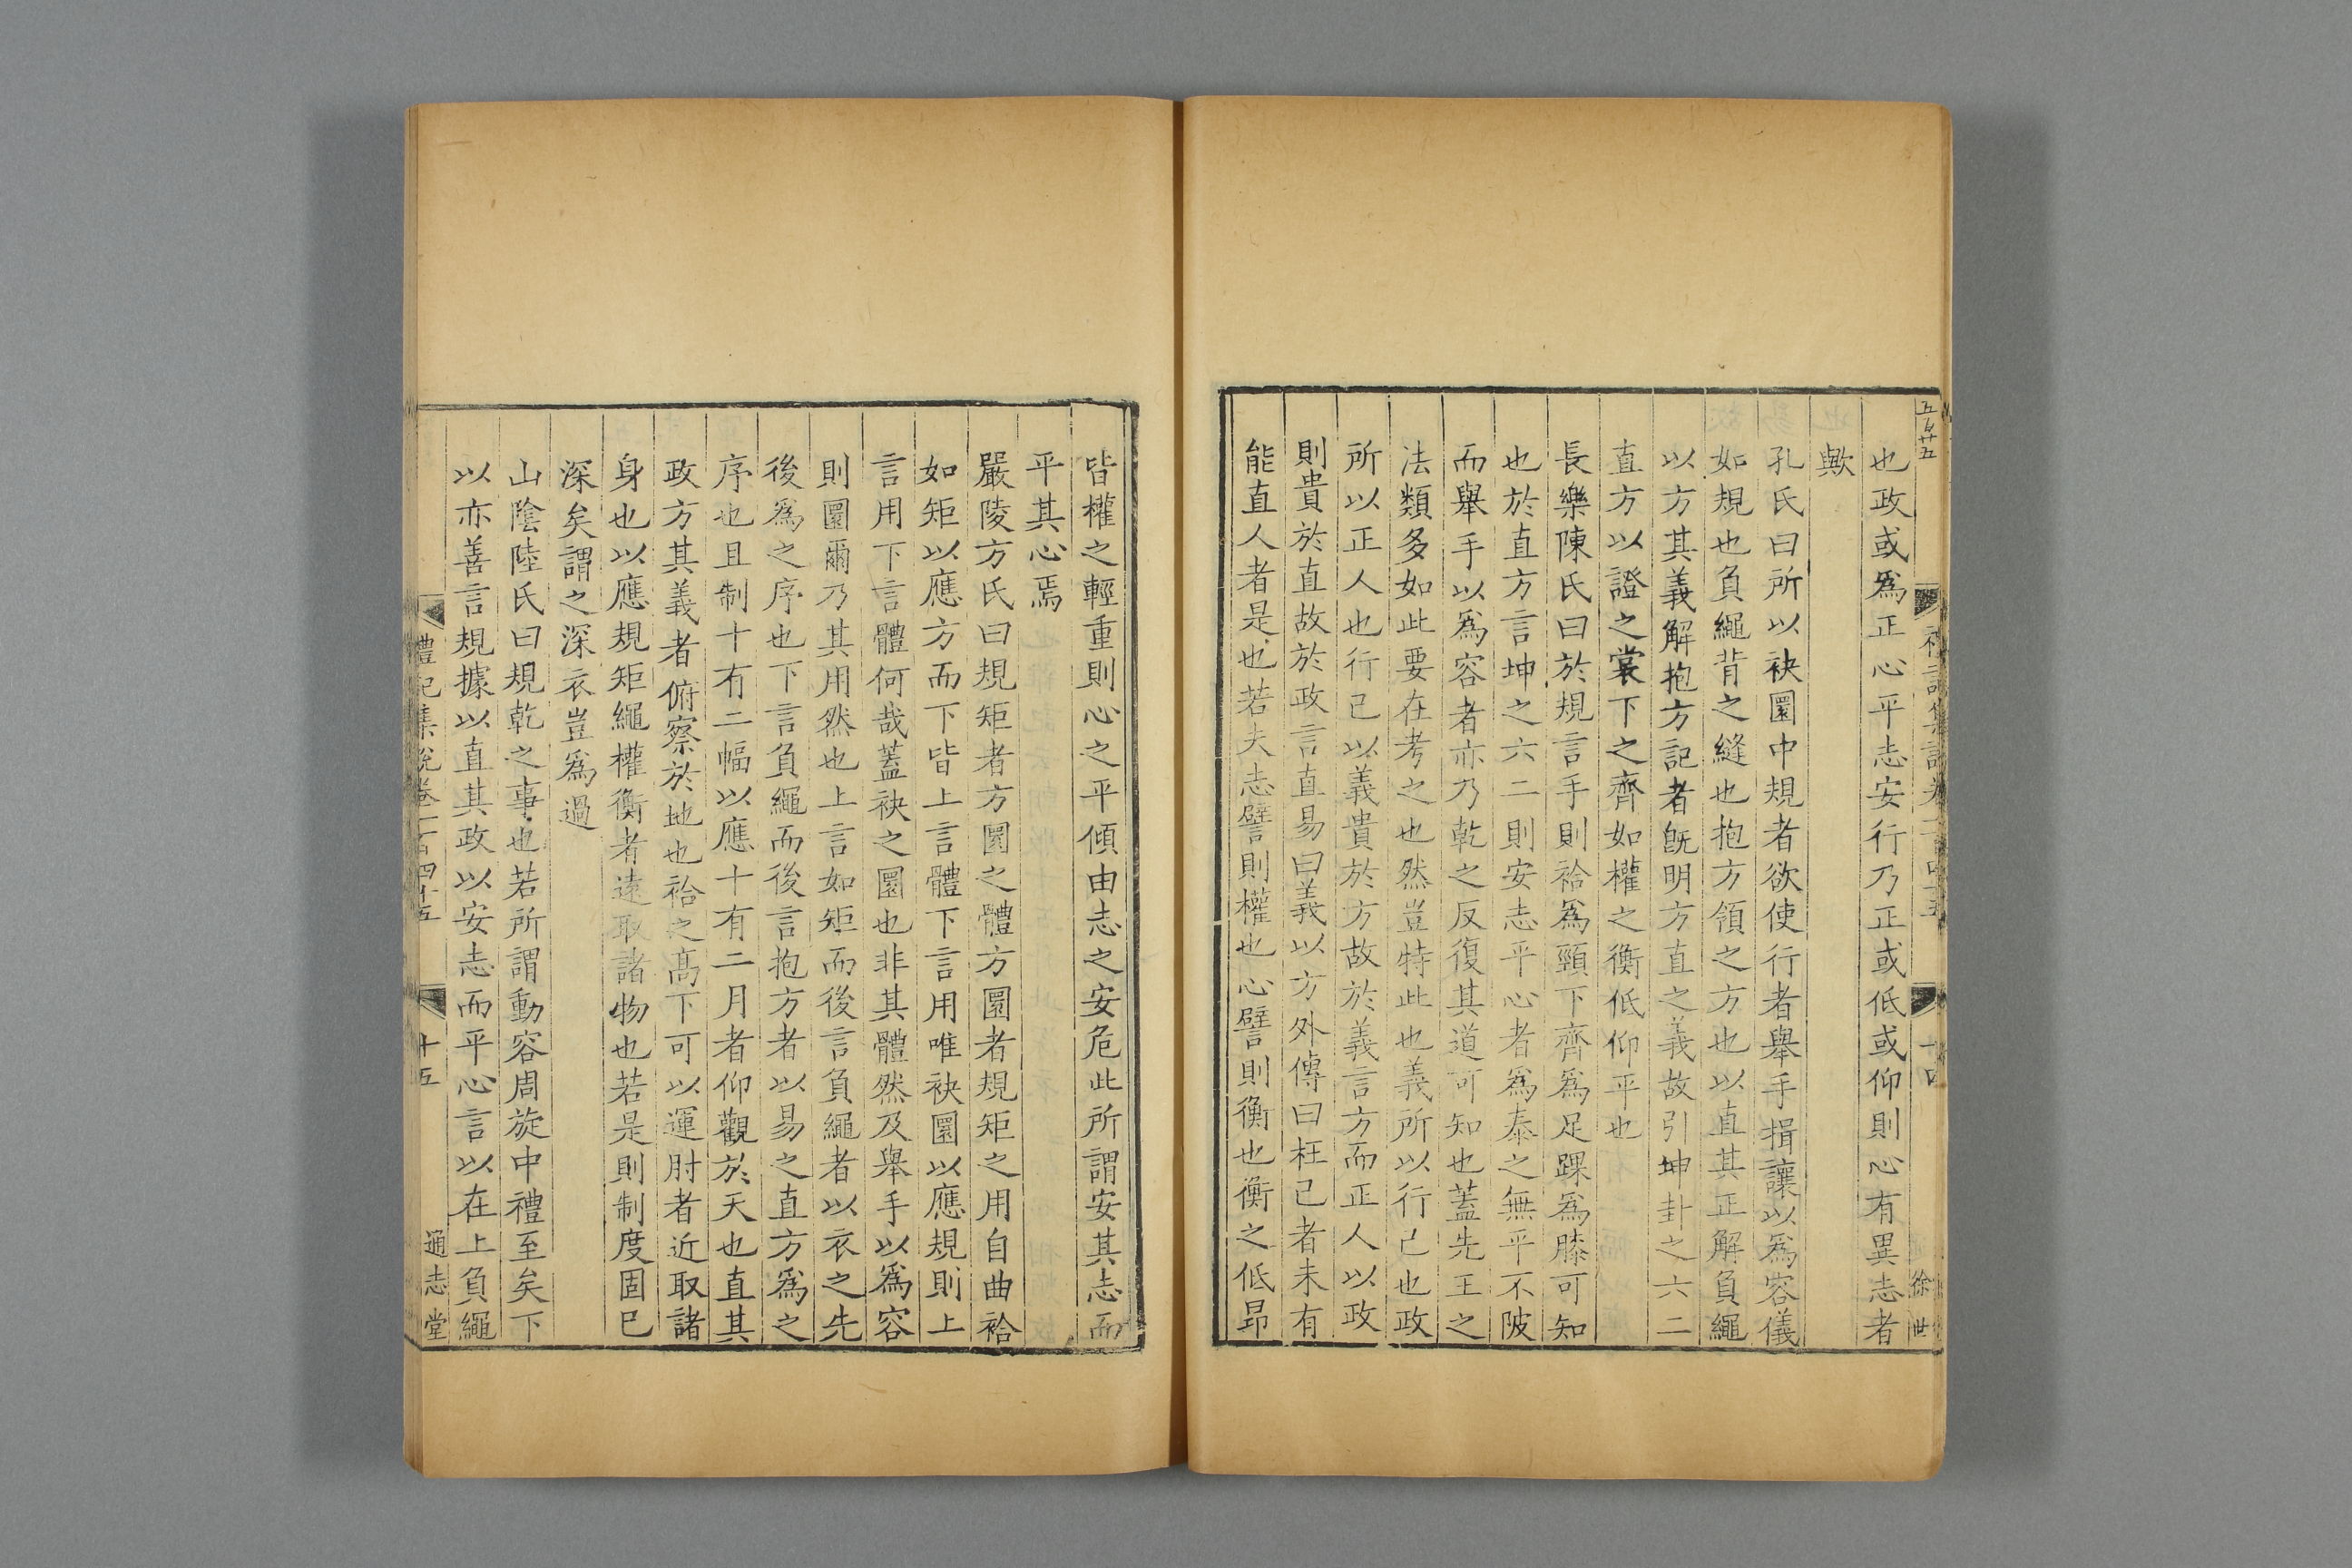 也政或爲正心平志安行乃正或低或仰則心有異志者
歟
孔氏曰所以袂圜中規者欲使行者舉手揖讓以爲容儀
如規也負繩背之縫也抱方領之方也以直其正解負繩
以方其義解抱方記者旣明方直之義故引坤卦之六二
直方以證之裳下之齊如權之衡低仰平也
長樂陳氏曰於規言手則袷爲頸下齊爲足踝爲膝可知
也於直方言坤之六二則安志平心者爲泰之無平不陂
而舉手以爲容者亦乃乾之反復其道可知也蓋先王之
法類多如此要在考之也然豈特此也義所以行己也政
所以正人也行己以義貴於方故於義言方而正人以政
則貴於直故於政言直易曰義以方外傳曰枉己者未有
能直人者是也若夫志譬則權也心譬則衡也衡之低昂
皆權之輕重則心之平傾由志之安危此所謂安其志而
平其心焉
嚴陵方氏曰規矩者方圜之體方圜者規矩之用自曲袷
如矩以應方而下皆上言體下言用唯袂圜以應規則上
言用下言體何哉蓋袂之圜也非其體然及舉手以爲容
則圜爾乃其用然也上言如矩而後言負繩者以衣之先
後爲之序也下言負繩而後言抱方者以易之直方爲之
序也且制十有二幅以應十有二月者仰觀於天也直其
政方其義者俯察於地也袷之高下可以運肘者近取諸
身也以應規矩繩權衡者遠取諸物也若是則制度固已
深矣謂之深衣豈爲過
山陰陸氏曰規乾之事也若所謂動容周旋中禮至矣下
以亦善言規據以直其政以安志而平心言以在上負繩
禮記集說卷一百四十五 十五 通志堂